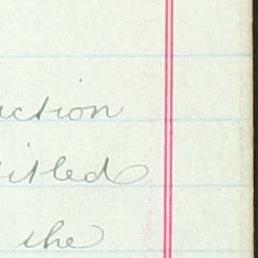 uction
itled
the